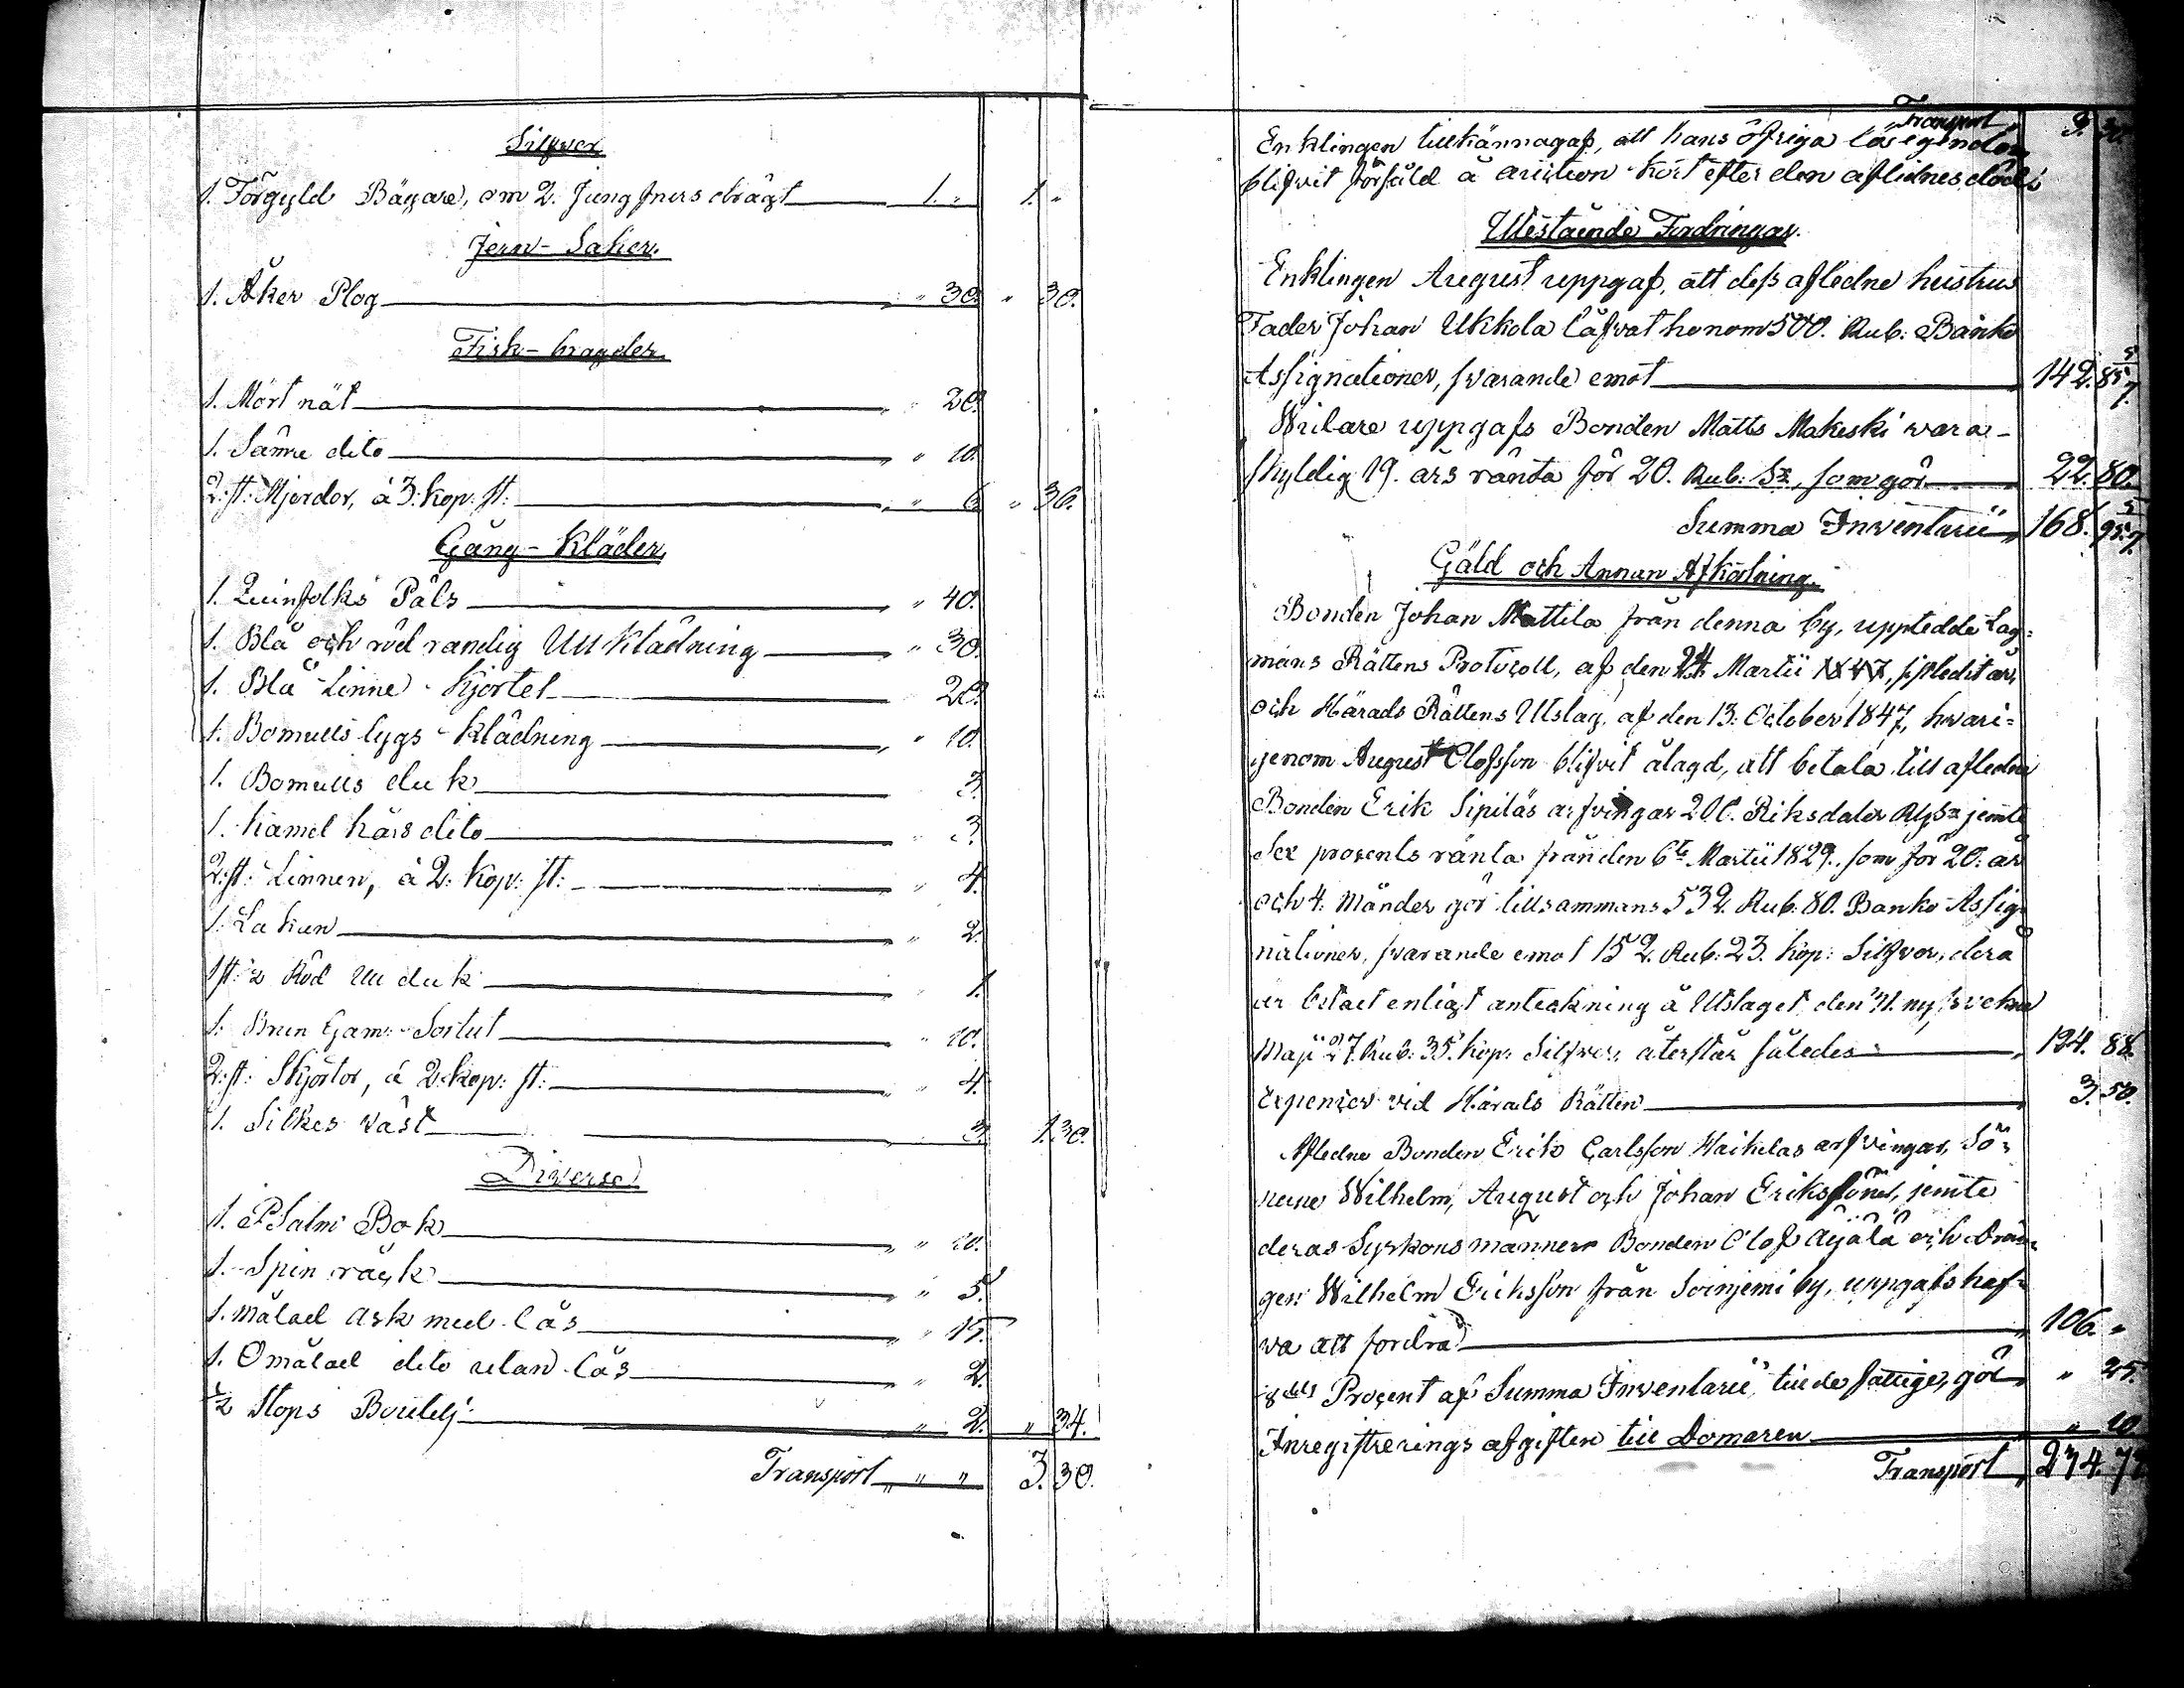 Silfver
1. Förgyld Bägare, om 2. Jungfrurs drägt 1. " 1. "
Jern-Saker.
1. Åker Plog " 30. " 30.
Fisk-bragder.
1. Mört nät " 20.
1. Sämre dito " 10.
2. st: Mjerdor, à 3. kop: st: " 6. " 36.
Gång-Kläder,
1. Quinfolks Päls " 40.
1. Blå och röd randig Ull Klädning " 30.
1. Blå Linne Kjortel " 20.
1. Bomulls tygs-Klädning " 10.
1. Bomulls duk 3.
1. kamel hårs dito " 3.
2. st: Linnen, à 2. kop: st: " 4.
1. Lakan " 2.
1 st: Röd Ull duk " 1.
1. Brun Gam: Sortut " 10.
2. st: Skjortor, à 2. kop: st: " 4.
1. Silkes väst 3. 1. 30.
Diverse
1. PSalm Bok " " 10.
1. Spin råck " " 5.
1. Målad Ask med lås " " 15.
1. Omålad dito utan lås " 2.
1/2 Stops Boutelj " 2. " 34.
Transport " " 3. 30.
Transport 3. 30.
Enklingen tillkännagaf, att hans öfriga lösegendom
blifvit försåld å auction kort efter den aflidnes död.
Utestående Fordringar.
Enklingen August uppgaf, att dess afledne hustrus
Fader Johan Ukkola låfvat honom 500. Rub: Banko
Assignationer, svarande emot 142. 85 5/7.
Widare uppgafs Bonden Matts Makeski vara
skyldig 19. års ränta för 20. Rub: Sr, som gör 22. 80.
Summa Inventarii 168. 95 5/7.
Gäld och Annan Afkortning.
Bonden Johan Mattila från denna by, uppledde Lag=
mans Rättens Protocoll, af den 24 Martii 1847,
och Härads Rättens Utslag, af den 13. October 1847, hvari=
genom August Olofsson blifvit ålagd, att betala till afledne
Bonden Erik Sipiläs arfvingar 200. Riksdaler jemte
Sex procents ränta från den 6te Martii 1829., som för 20. år
och 4. Månder gör tillsammans 532. Rub: 80. Banko Assig=
nationer, svarande emot 152. Rub: 23. kop: Silfver, derå
är betalt enligt anteckning å Utslaget den
Maji 27. Rub: 35. kop: Silfver, återstår således 124. 88.
Expenser vid Härads Rätten 3. 50.
Afledne Bonden Erik Carlsson Haikolas arfvingar, Sö=
nerne Wilhelm, August och Johan Erikssöner, jemte
deras Syskonsmänner Bonden Olof Äijälä och Drän=
gen Wilhelm Eriksson från Soinjemi by, uppgafs haf=
va att fordra 106. "
8dels Procent af Summa Inventarii till de fattige, gör " 25.
Inregistrerings afgiften till Domaren " 10.
Transport 234. 73.